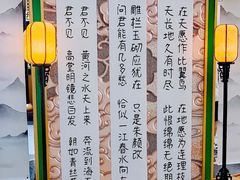 在天愿作比翼鸟 在地愿为连理枝
天长地久有时尽 此恨绵绵无绝期
雕栏玉砌应犹在 只是朱颜改
问君能有几多愁 恰似一江春水向
君不见 黄河之水天上来 奔流到海
君不见 高堂明镜悲白发 朝如青丝